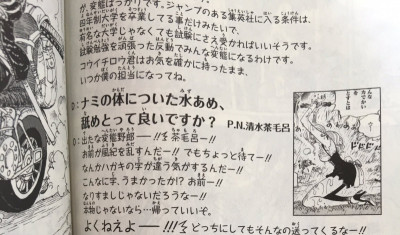 が、変態ばっかりです。ジャンプのある集英社に入る条件は、
4年制大学を卒業してる事だけみたいで、
有名な大学じゃなくても試験にさえ受かればいいそうです。
試験勉強を頑張った反動でみんな変態になるわけです。
コウイチロウ君はお気を確かに持ったまま、
いつか僕の担当になってね。
D:ナミの体についた水あめ、
舐めとって良いですか? P.N.清水茶毛呂
O:出たな変態野郎——!! 茶毛呂——!!
お前が風紀を乱すんだー!! でもちょっと待てー!!
なんかハガキの字が違う気がするんだー!!
こんなに字、うまかったか!? お前ー!!
なりすましじゃないだろうなー!!
本物じゃないなら…帰っていいぞ。
よくねえよ——!!! どっちにしてもそんなの送ってくるなー!!